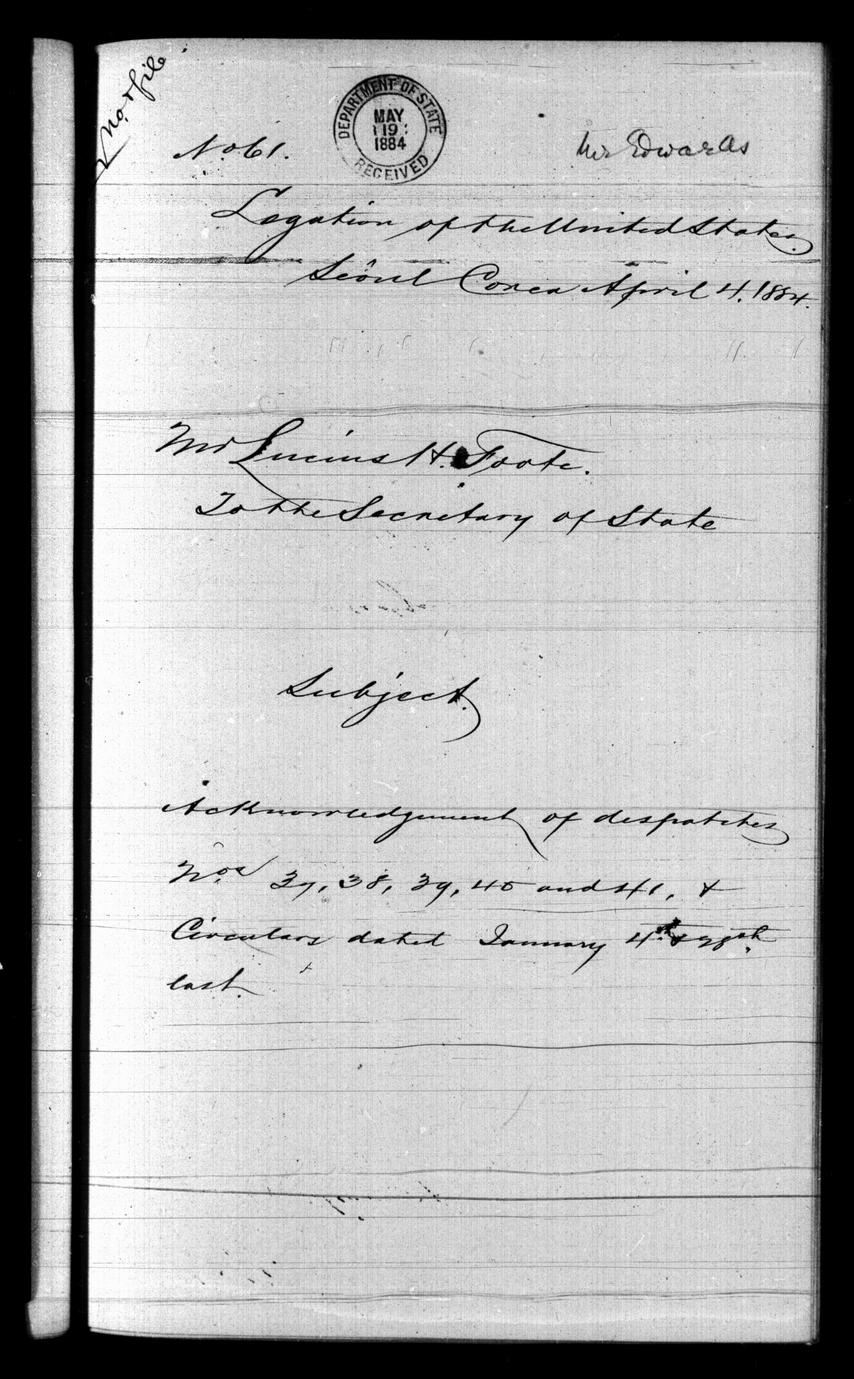 No & file
No 61.
DEPARTMENT OF STATE
MAY
19
1884
RECEIVED
Mr Edwards
Legation of the United States
Seoul Corea April 4, 1884.
Mr Lucius H. Foote.
To the Secretary of State
Subject.
Acknowledgement of despatches
Nos 37, 38, 39, 40 and 41, &
Circulars dated January 4th &
last.